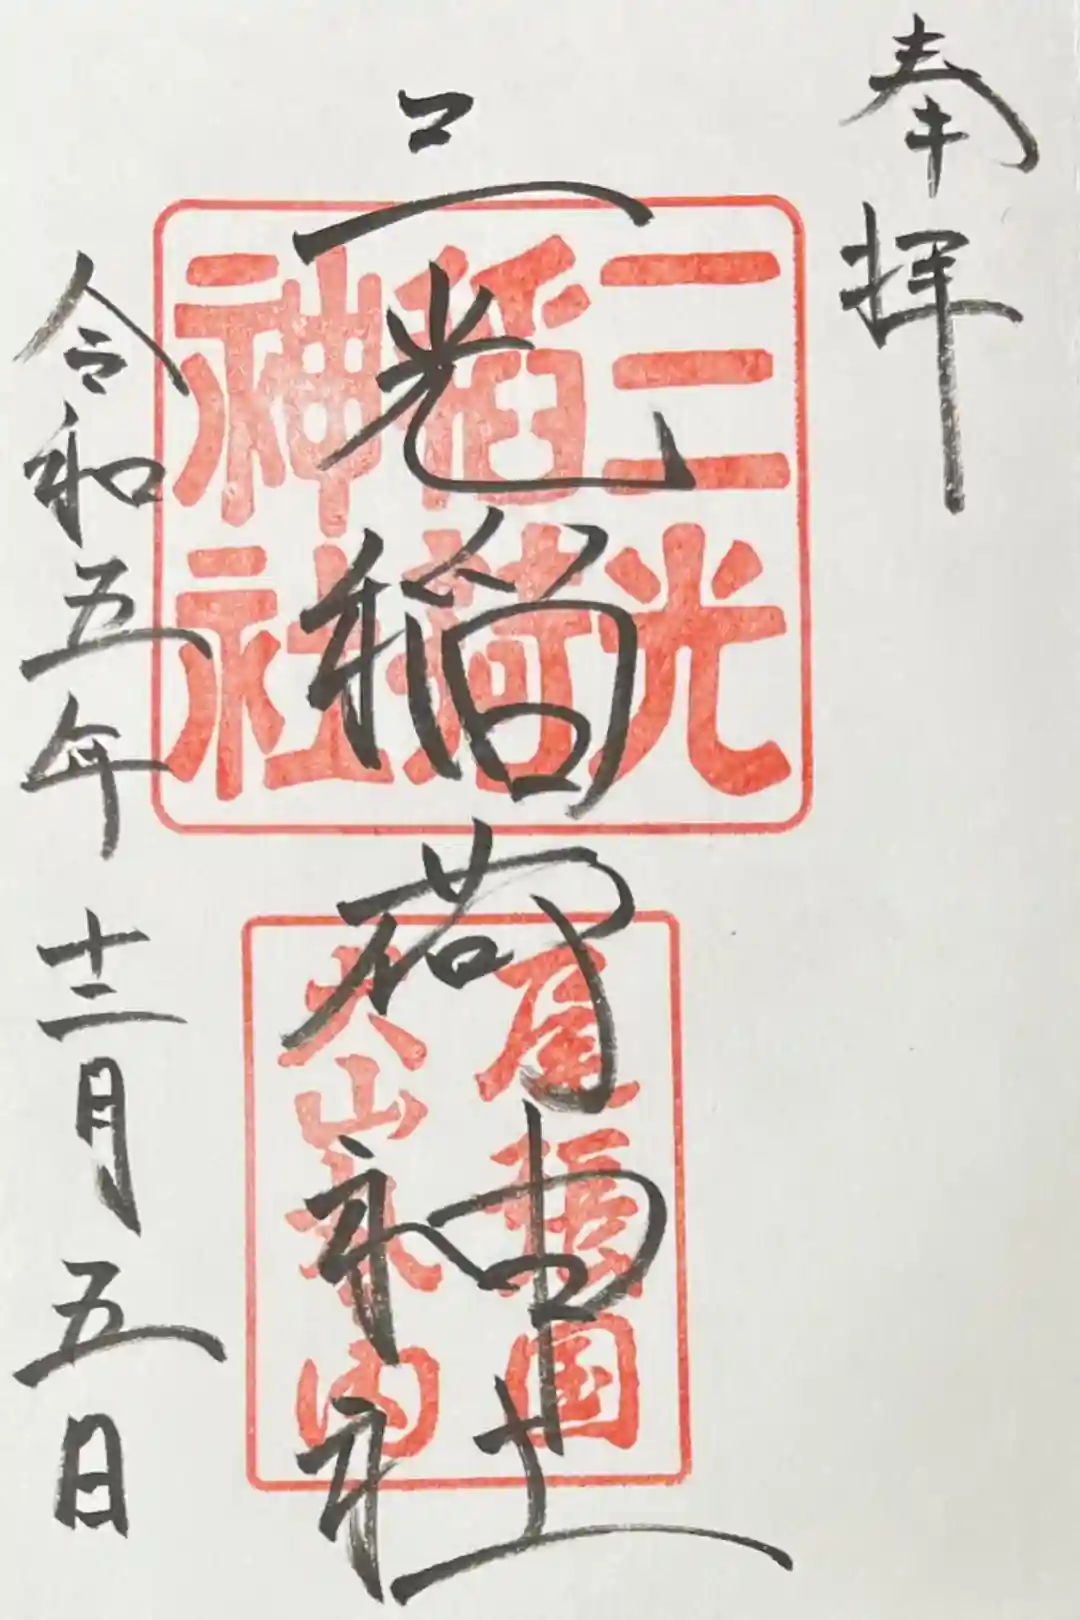 奉拝
三光稲荷神社
三光
稲荷
神社
尾張国
犬山城内
令和五年十二月五日